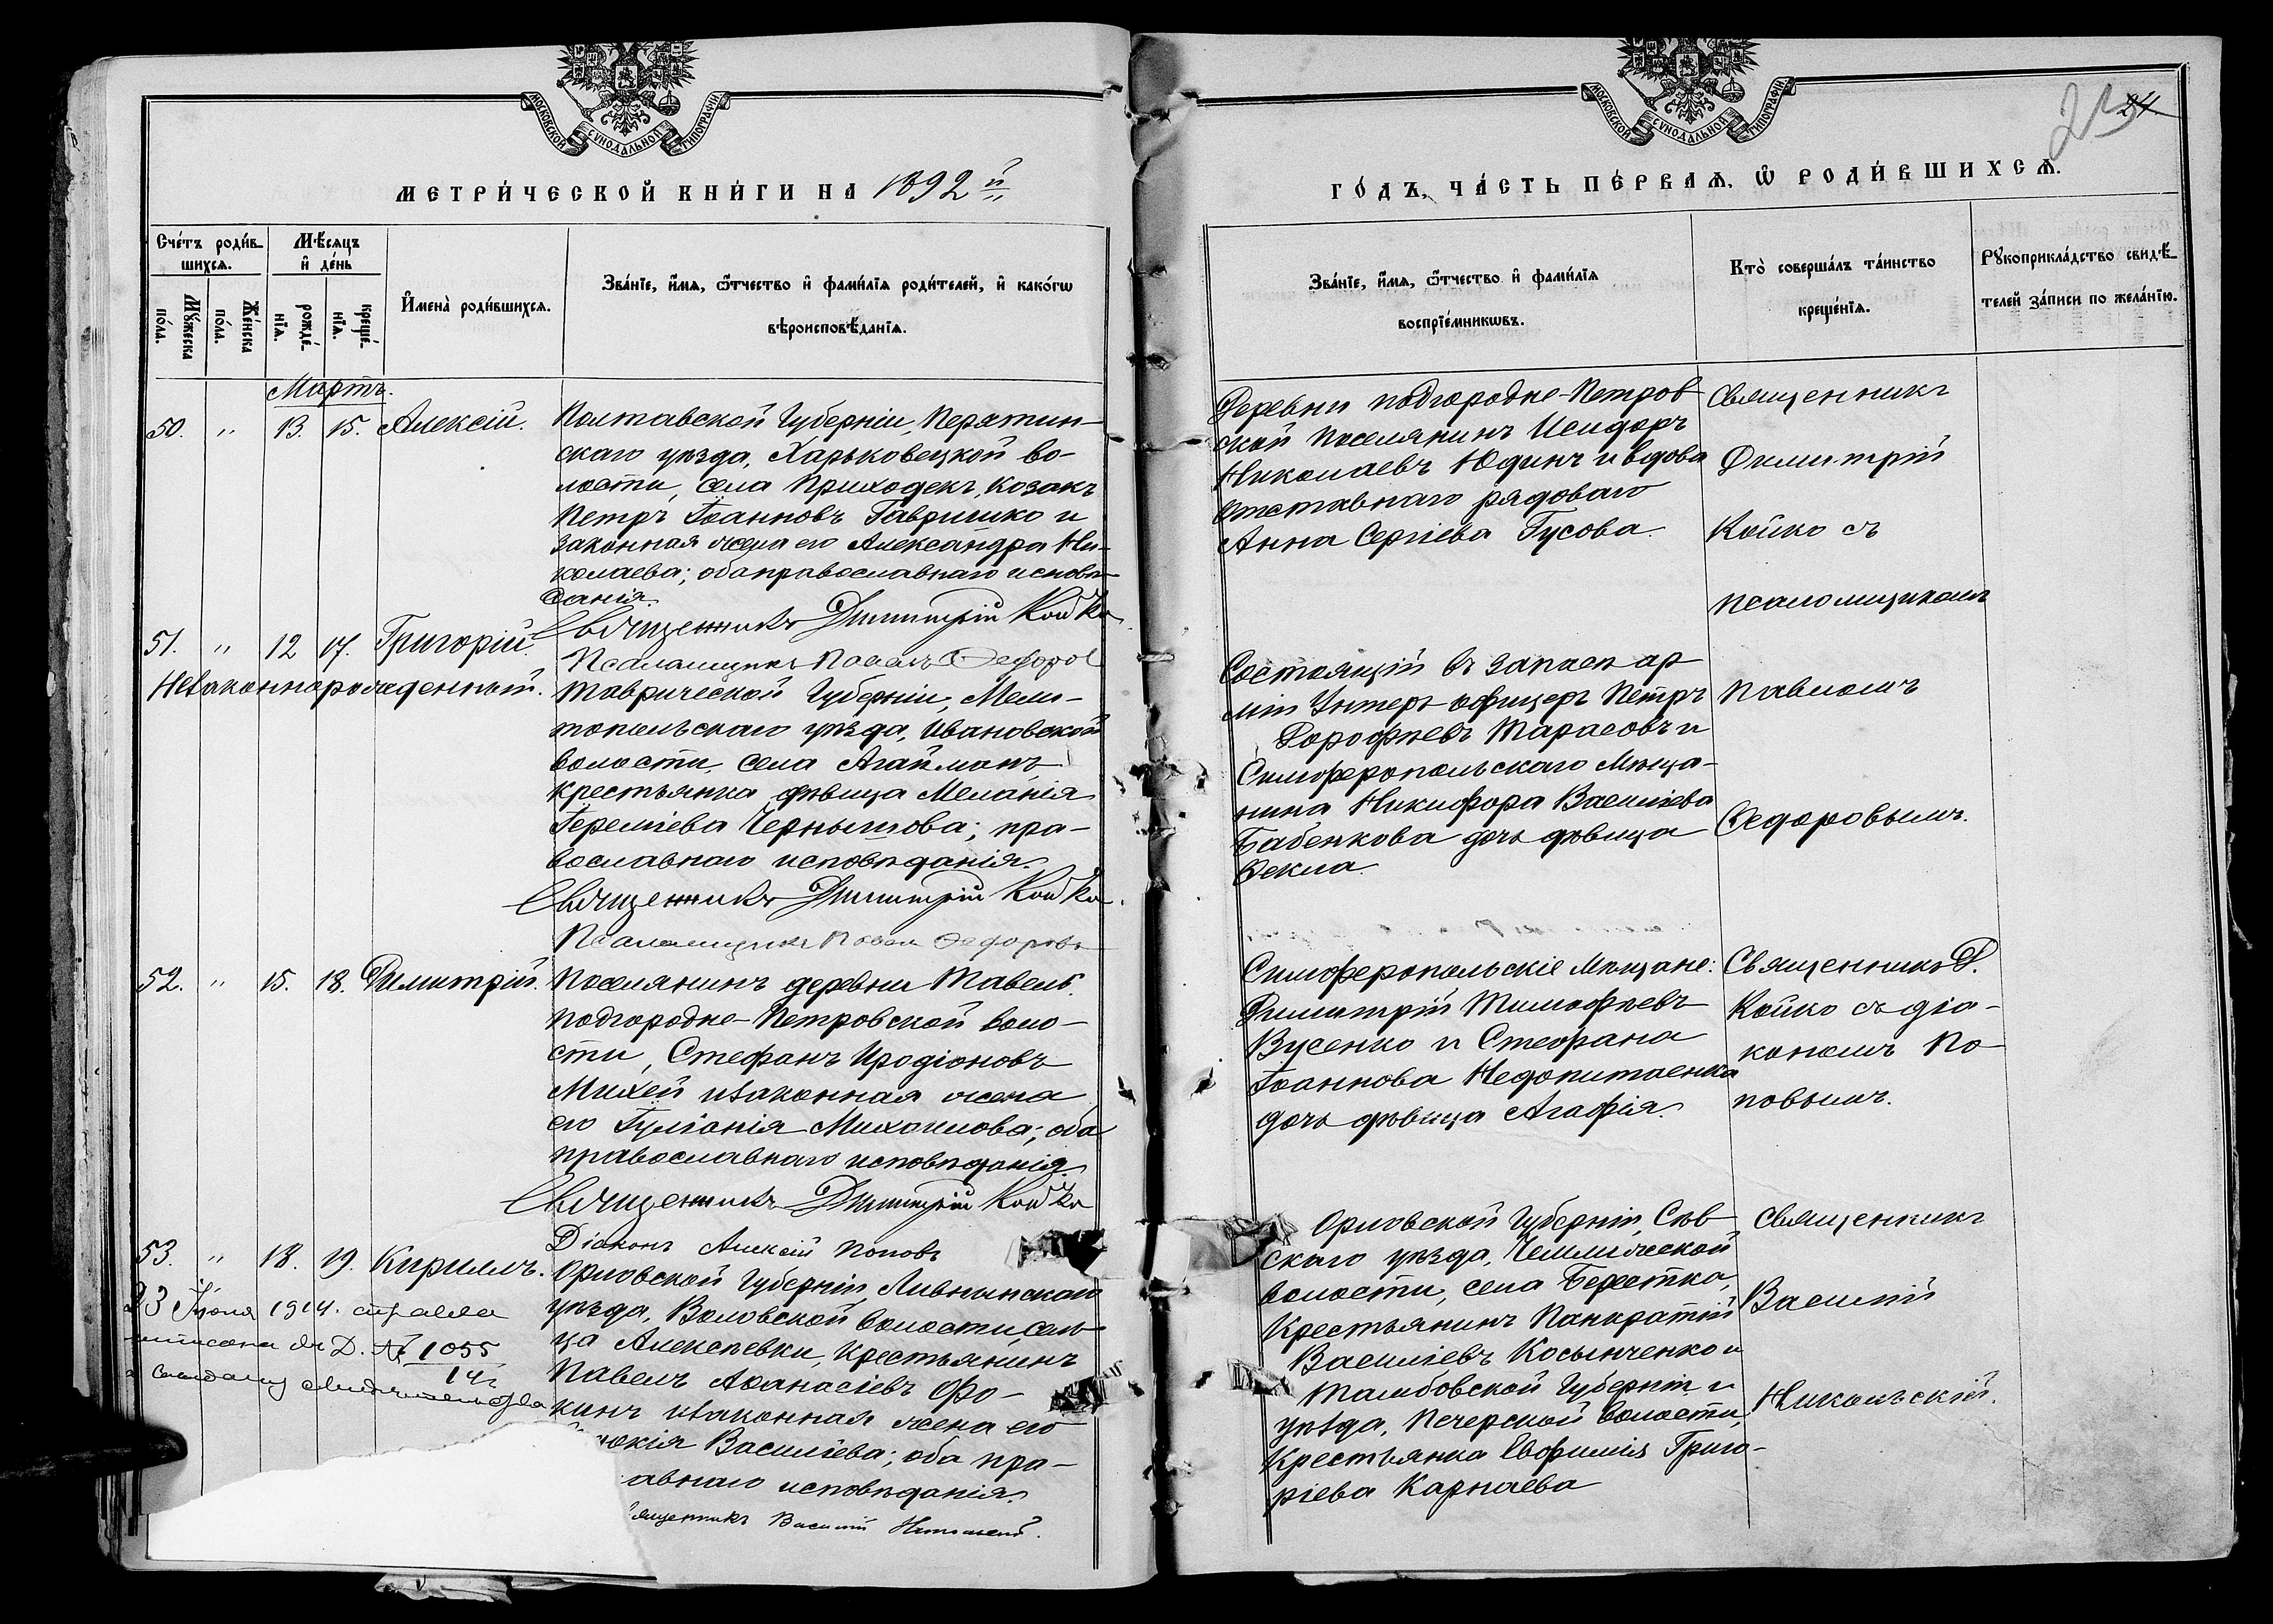 МОСКОВСКОЙ СѴНОДАЛЬНОЙ ТИПОГРАФІИ
МЕТРИ́ЧЕСКОЙ КНИ́ГИ НА 1892й
Сче́тъ роди́в-
шихсѧ.
Мꙋ́жеска
по́ла.
Же́нска
по́ла.
Мѣ́сяцъ
и҆ де́нь
рожде́-
нїѧ.
креще́-
нїѧ.
И҆мена̀ роди́вшихсѧ.
Зва́нїе, и҆́мѧ, ѿ́тчество и҆ фами́лїѧ роди́телей, и҆ како́гѡ
вѣроисповѣ́данїѧ.
Мартъ.
50. " 13. 15. Алексій.
Полтавской Губерніи, Перятин-
скаго уѣзда, Харьковецкой во-
лости, села Приходекъ, Козакъ
Петръ Іоанновъ Гавришко и
законная жена его Александра Ни-
колаева; оба православнаго исповѣ-
данія.
Священникъ Димитрій Койко
Псаломщикъ Павелъ Федоров
51. " 12 17. Григорій.
Незаконнорожденный.
Таврической Губерніи, Мели-
топольскаго уѣзда, Ивановской
волости, села Агайманъ,
крестьянка дѣвица Меланія
Іереміева Чернышова; пра-
вославнаго исповѣданія.
Священникъ Димитрій Койко.
Псаломщикъ Павел Федоровъ
52. " 15. 18. Димитрій.
Поселянинъ деревни Тавель
Подгородне-Петровской воло-
сти, Стефанъ Иродіоновъ
Михей и законная жена
его Гуліанія Михаилова; оба
православнаго исповѣданія.
Священникъ Димитрій Койко
Діаконъ Алексій Поповъ
53. " 18. 19. Кириллъ.
23 Іюня 1914. справка
выписана Д. № 1055
14г
Орловской Губерніи, Ливнинскаго
уѣзда, Воловской волости, сель-
ца Алексѣевки, крестьянинъ
Павелъ Аѳанасіевъ Фо-
кинъ и законная жена его
докія Василіева; оба пра-
авнаго исповѣданія.
ященникъ Василій Никольскій.
МОСКОВСКОЙ СѴНОДАЛЬНОЙ ТИПОГРАФІИ
25 24
ГО́ДЪ, ЧА́СТЬ ПЕ́РВАѦ, Ѡ҆ РОДИ́ВШИХСѦ.
Зва́нїе, и҆́мѧ, ѿ́тчество и҆ фами́лїѧ
воспрїе́мникѡвъ.
Кто̀ соверша́лъ та́инство
креще́нїѧ.
Рꙋкоприкла́дство свидѣ́-
телей за́писи по жела́нїю.
Деревни Подгородне-Петров
ской поселянинъ Исидоръ
Николаевъ Юдинъ и вдова
отставнаго рядоваго
Анна Сергіева Гусова.
Священникъ
Димитрій
Койко съ
псаломщикомъ
Павломъ
Ѳедоровымъ.
Состоящій въ запасѣ ар
міи Унтеръ-офицеръ Петръ
Дороѳеевъ Тарасовъ и
Симферопольскаго Мѣща-
нина Никифора Василіева
Бабенкова дочь дѣвица
Ѳекла.
Симферопольскіе Мѣщане:
Димитрій Тимофѣевъ
Вусенко и Стефана
Іоаннова Недопитаенка
дочь дѣвица Агафія.
Священникъ Д.
Койко съ діа-
кономъ По-
повымъ.
Орловской Губерніи, Сѣв
скаго уѣзда, Чемлижской
волости, села Берестка,
Крестьянинъ Панкратій
Василіевъ Косынченко и
Тамбовской Губерніи и
уѣзда, Печерской волости,
Крестьянка Евфимія Григо-
ріева Карнаева
Священникъ
Василій
Никольскій.